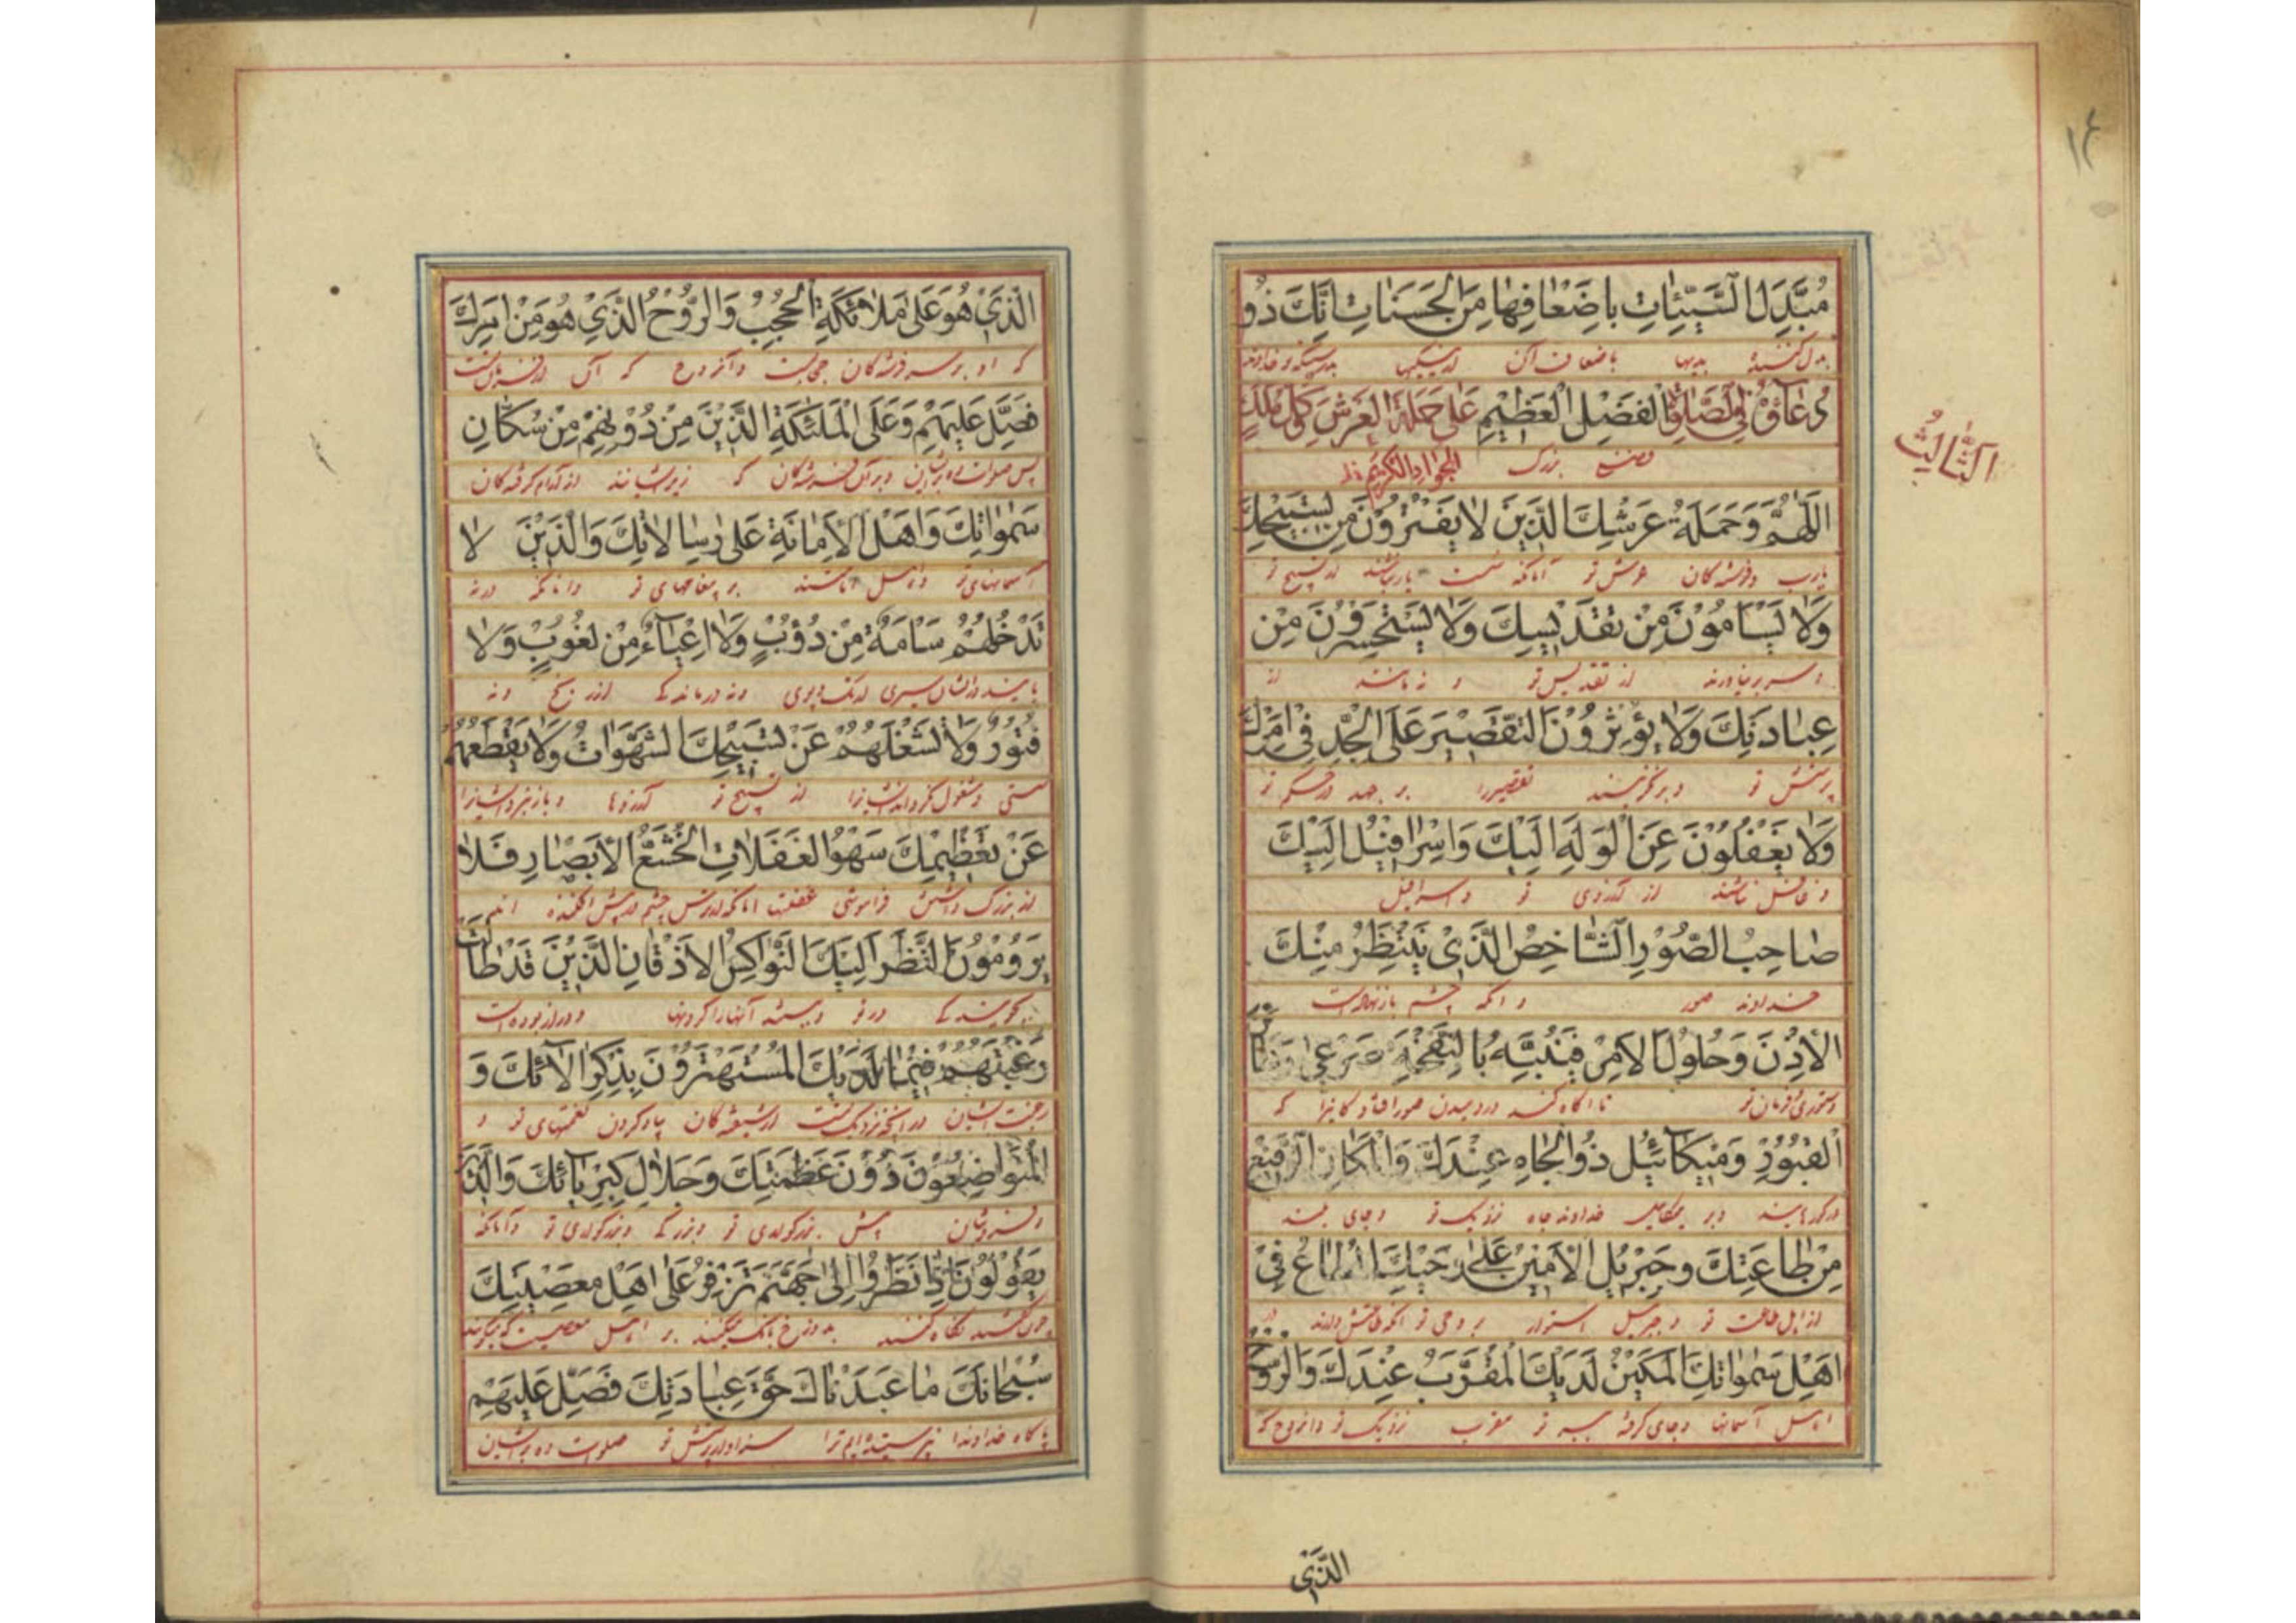 ١٤
مُبَدِّلَ السَّيِّئَاتِ بِاَضْعَافِهَا مِنَ الْحَسَنَاتِ اِنَّكَ ذُو
بدل کننده بدیها باضعاف آن از نیکیها بدرستیکه تو خداوند
الْفَضْلِ الْعَظِيْمِ دُعَاؤُهُ فِي الصَّلٰوةِ عَلٰى حَمَلَةِ الْعَرْشِ وَ كُلِّ مَلَكٍ
الثَّالِثُ
فضل بزرگ الجواد الكريم
اَللّٰهُمَّ وَحَمَلَةُ عَرْشِكَ الَّذِيْنَ لَا يَفْتُرُوْنَ مِنْ تَسْبِيْحِكَ
یارب و فرشته کان عرش تو آنانکه سست نباشند از تسبیح تو
وَلَا يَسْاَمُوْنَ مِنْ تَقْدِيْسِكَ وَلَا يَسْتَحْسِرُوْنَ مِنْ
و سر بر نیاورند از تقدیس تو و نه مانند از
عِبَادَتِكَ وَلَا يُؤْثِرُوْنَ التَّقْصِيْرَ عَلَى الْجِدِّ فِيْ اَمْرِكَ
پرستش تو و بر نگزینند تقصیر را بر جهد در حکم تو
وَلَا يَغْفُلُوْنَ عَنِ الْوَلَهِ اِلَيْكَ وَاِسْرَافِيْلُ اِلَيْكَ
و غافل نباشند از آرزوی تو و اسرافیل
صَاحِبُ الصُّوْرِ الشَّاخِصُ الَّذِيْ يَنْتَظِرُ مِنْكَ
خداوند صور و آنکه چشم باز نهاده است
الْاِذْنَ وَحُلُوْلَ الْاَمْرِ فَيُنَبِّهُ بِالنَّفْخَةِ صَرْعٰى رَهَائِنِ
دستوری و فرمان تو تا آگاه کند در دمیدن صور افتادگانرا که
الْقُبُوْرِ وَمِيْكَائِيْلُ ذُو الْجَاهِ عِنْدَكَ وَالْمَكَانِ الرَّفِيْعِ
در گورهایند و بر میکائیل خداوند جاه نزدیک تو و جای بلند
مِنْ طَاعَتِكَ وَجِبْرِيْلُ الْاَمِيْنُ عَلٰى وَحْيِكَ الْمُطَاعُ فِيْ
از اهل طاعت تو و جبرئیل استوار بر وحی تو آنکه طاعتش دارند در
اَهْلِ سَمٰوَاتِكَ الْمَكِيْنُ لَدَيْكَ الْمُقَرَّبُ عِنْدَكَ وَالرُّوْحُ
اهل آسمانها و جای گرفته تو مقرب نزدیک تو و آنروح که
الَّذِيْ
الَّذِيْ هُوَ عَلٰى مَلَائِكَةِ الْحُجُبِ وَالرُّوْحُ الَّذِيْ هُوَ مِنْ اَمْرِكَ
که او بر سر فرشته کان حجابست و آنروح که آن از فرمان تست
فَصَلِّ عَلَيْهِمْ وَعَلَى الْمَلٰئِكَةِ الَّذِيْنَ مِنْ دُوْنِهِمْ مِنْ سُكَّانِ
پس صلوات ده بر ایشان و بر آن فرشته کان که زیر ایشانند از آرام گرفته کان
سَمٰوَاتِكَ وَاَهْلِ الْاَمَانَةِ عَلٰى رِسَالَاتِكَ وَالَّذِيْنَ لَا
آسمانهای تو و اهل امانتند بر پیغامهای تو و آنانکه در نه
تَدْخُلُهُمْ سَاْمَةٌ مِنْ دُؤُبٍ وَلَا اِعْيَاءٌ مِنْ لُغُوْبٍ وَلَا
یابد در ایشان سیری از تک و پوی و نه درماندگی از رنج و نه
فُتُوْرٌ وَلَا تَشْغَلُهُمْ عَنْ تَسْبِيْحِكَ الشَّهَوَاتُ وَلَا يَقْطَعُهُمْ
سستی و مشغول نگرداند ایشانرا از تسبیح تو آرزوها و باز نبرد ایشانرا
عَنْ تَعْظِيْمِكَ سَهْوُ الْغَفَلَاتِ الْخُشَّعُ الْاَبْصَارِ فَلَا
از بزرگ داشتن فراموشی غفلتها آنانکه از ترس چشم در پیش افکنده اند
يَرُوْمُوْنَ النَّظَرَ اِلَيْكَ النَّوَاكِسُ الْاَذْقَانِ الَّذِيْنَ قَدْ طَالَتْ
در تو آنها را گردنها و دراز بوده است
رَغْبَتُهُمْ فِيْمَا لَدَيْكَ الْمُسْتَهْتَرُوْنَ بِذِكْرِ اٰلَائِكَ وَ
رغبت ایشان در آنچه نزدیک تست از شیفته کان یاد کردن نعمتهای تو و
الْمُتَوَاضِعُوْنَ دُوْنَ عَظَمَتِكَ وَجَلَالِ كِبْرِيَائِكَ وَالَّذِيْنَ
و فروتنان پیش بزرگواری تو و بزرگی و بزرگواری تو و آنانکه
يَقُوْلُوْنَ اِذَا نَظَرُوْا اِلٰى جَهَنَّمَ تَزْفِرُ عَلٰى اَهْلِ مَعْصِيَتِكَ
چون نگاه کنند بدوزخ بانگ میکند بر اهل معصیت که میگویند
سُبْحَانَكَ مَا عَبَدْنَاكَ حَقَّ عِبَادَتِكَ فَصَلِّ عَلَيْهِمْ
پاکا خداوندا نپرستیده ایم ترا سزاوار پرستش تو صلوات ده بر ایشان